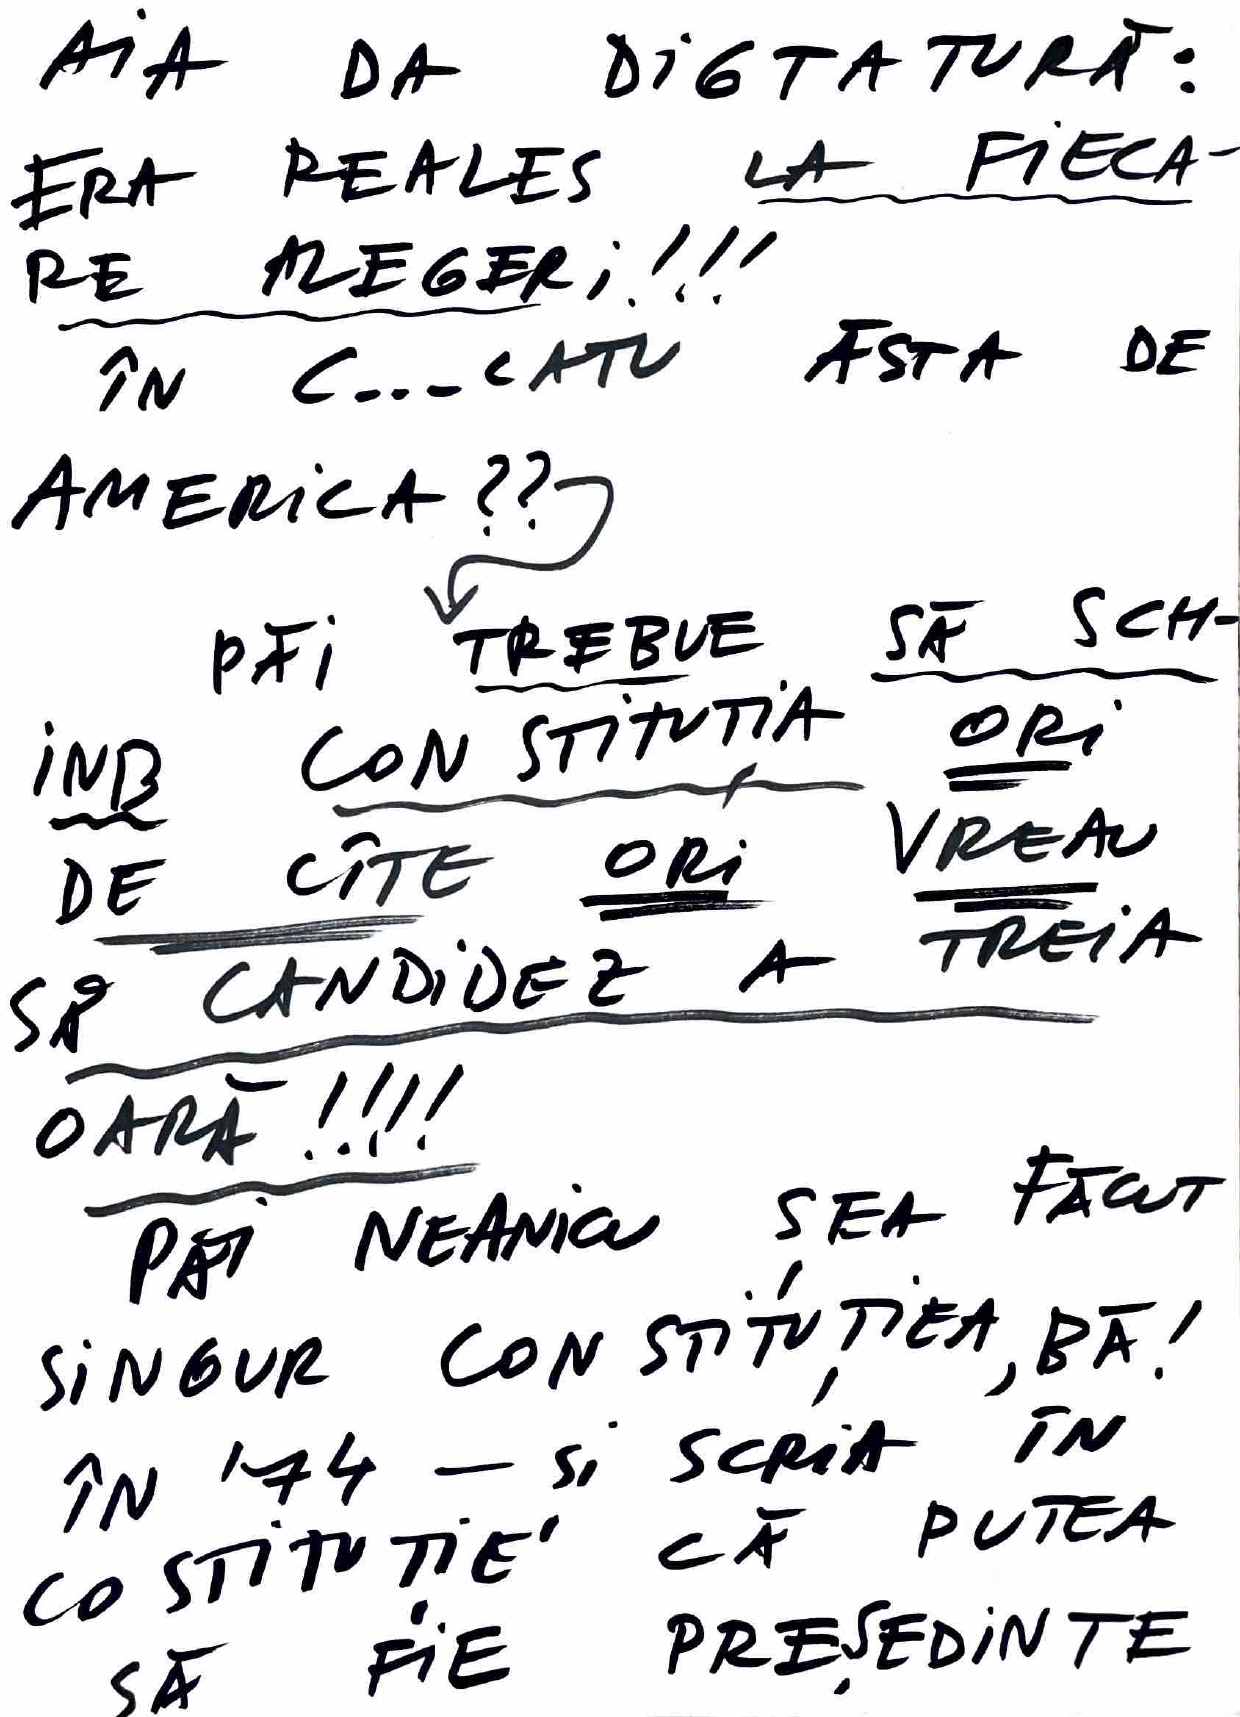 AiA DA DiGTATURĂ:
ERA REALES LA FiECA-
RE ALEGERi!!!
ÎN C...CATU ĂSTA DE
AMERiCA??
PĂi TREBUE SĂ SCH-
iNB CONSTiTUTiA ORi
DE CÎTE ORi VREAU
SĂ CANDiDEZ A TREiA
OARĂ!!!!
PĂi NEANiCU SEA FĂCUT
SiNGUR CONSTiTUȚiEA, BĂ!
ÎN '74 — Si SCRiA ÎN
COSTiTUȚiE' CĂ PUTEA
SĂ FiE PREȘEDiNTE